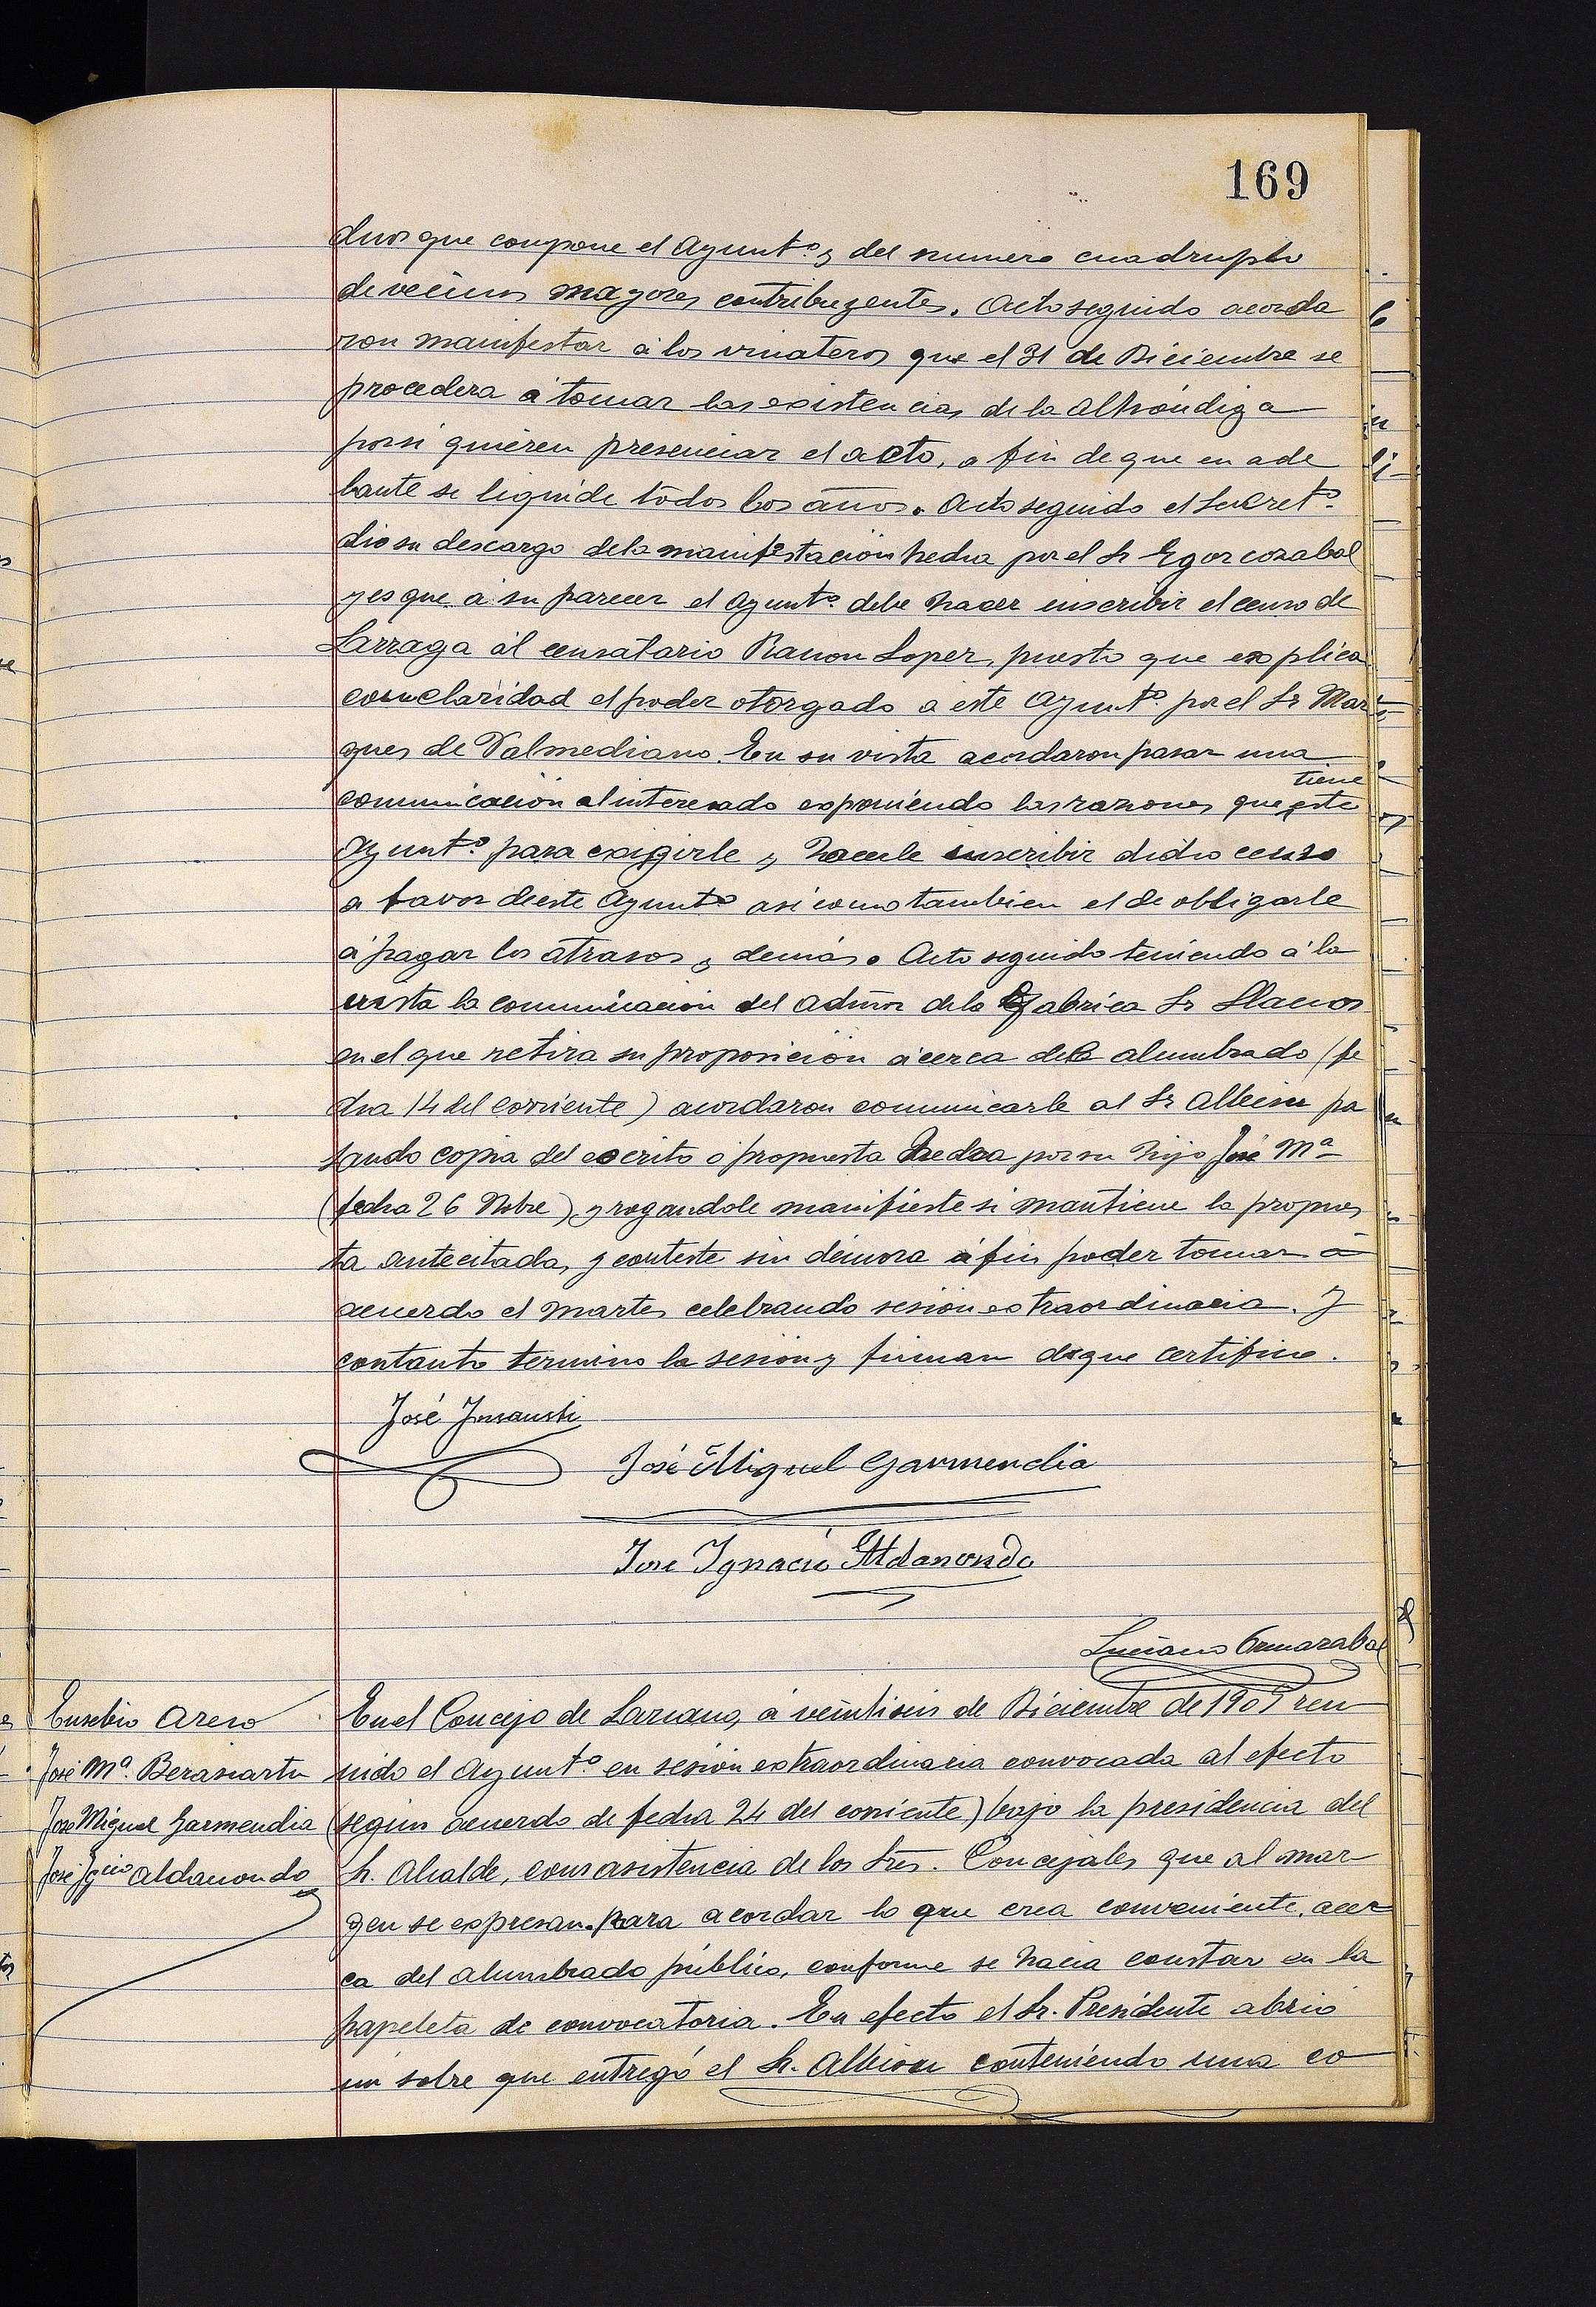 169
duos que compone el Ayunt.º y del numero cuadruplo
de vecinos mayores contribuyentes. Acto seguido acorda
ron manifestar á los vinateros que el 31 de Diciembre se
procedera á tomar las existencias de la Alhóndiga
por si quieren presenciar el acto, a fin de que en ade
lante se liquide todos los años. Acto seguido el Secret.º
dio su descargo de la manifestación hecha por el Sr Egorcozabal
y es que á su parecer el Ayunt.º debe hacer inscribir el censo de
Larraga al censatario Ramon Lopez, puesto que explica
con claridad el poder otorgado a este Ayunt.º por el Sr Mar
ques de Valmediano. En su vista acordaron pasar una
comunicación al interesado exponiendo las razones que tiene este
Ayunt.º para exigirle y hacerle inscribir dicho censo
a favor de este Ayunt.º asi como tambien el de obligarle
á pagar los atrasos y demás. Acto seguido teniendo á la
vista la comunicación del Admor de la Fabrica Sr Llanos
en el que retira su proposición acerca del alumbrado (fe
cha 14 del corriente) acordaron comunicarle al Sr Albisu pa
sando copia del escrito o propuesta hecha por su hijo José Mª
(fecha 26 Nobre) y rogandole manifieste si mantiene la propues
ta antecitada, y conteste sin demora á fin poder tomar á
acuerdo el martes celebrando sesión extraordinaria. Y
con tanto termino la sesión y firman de que certifico.
José Insausti
José Miguel Garmendia
Jose Ignacio Aldanondo
Luciano Ormazabal
Eusebio Areso
José Mª. Berasiartu
José Miguel Garmendia
José Ygcio Aldanondo
En el Concejo de Lazcano, á veintiseis de Diciembre de 1905 reu
nido el Ayunt.º en sesión extraordinaria convocada al efecto
(segun acuerdo de fecha 24 del corriente) bajo la presidencia del
Sr. Alcalde, con asistencia de los Sres. Concejales que al mar
gen se expresan para acordar lo que crea conveniente, acer
ca del alumbrado público, conforme se hacia constar en la
papeleta de convocatoria. En efecto el Sr. Presidente abrió
un sobre que entregó el Sr. Albisu conteniendo una co